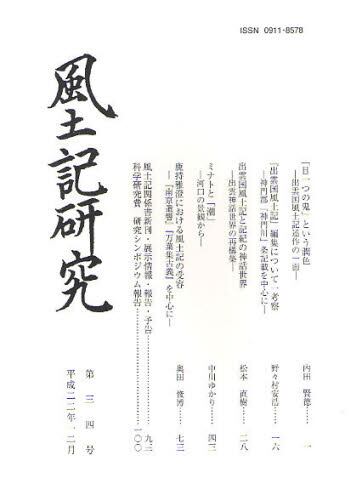 ISSN 0911-8578
風土記研究
「目一つの鬼」という潤色
―出雲国風土記述作の一面―
内田 賢德 一
『出雲国風土記』編集について一考察
―神門郡「神門川」条記載を中心に―
野々村安浩 一六
出雲国風土記と記紀の神話世界
―出雲神話世界の再構築―
松本 直樹 二八
ミナトと「潮」
―河口の景観から―
中川ゆかり 四三
鹿持雅澄における風土記の受容
―『南京遺響』『万葉集古義』を中心に―
奥田 俊博 七三
風土記関係書新刊・展示情報・報告・予告 九三
科学研究費 研究シンポジウム報告 一〇〇
第三四号
平成二二年一二月